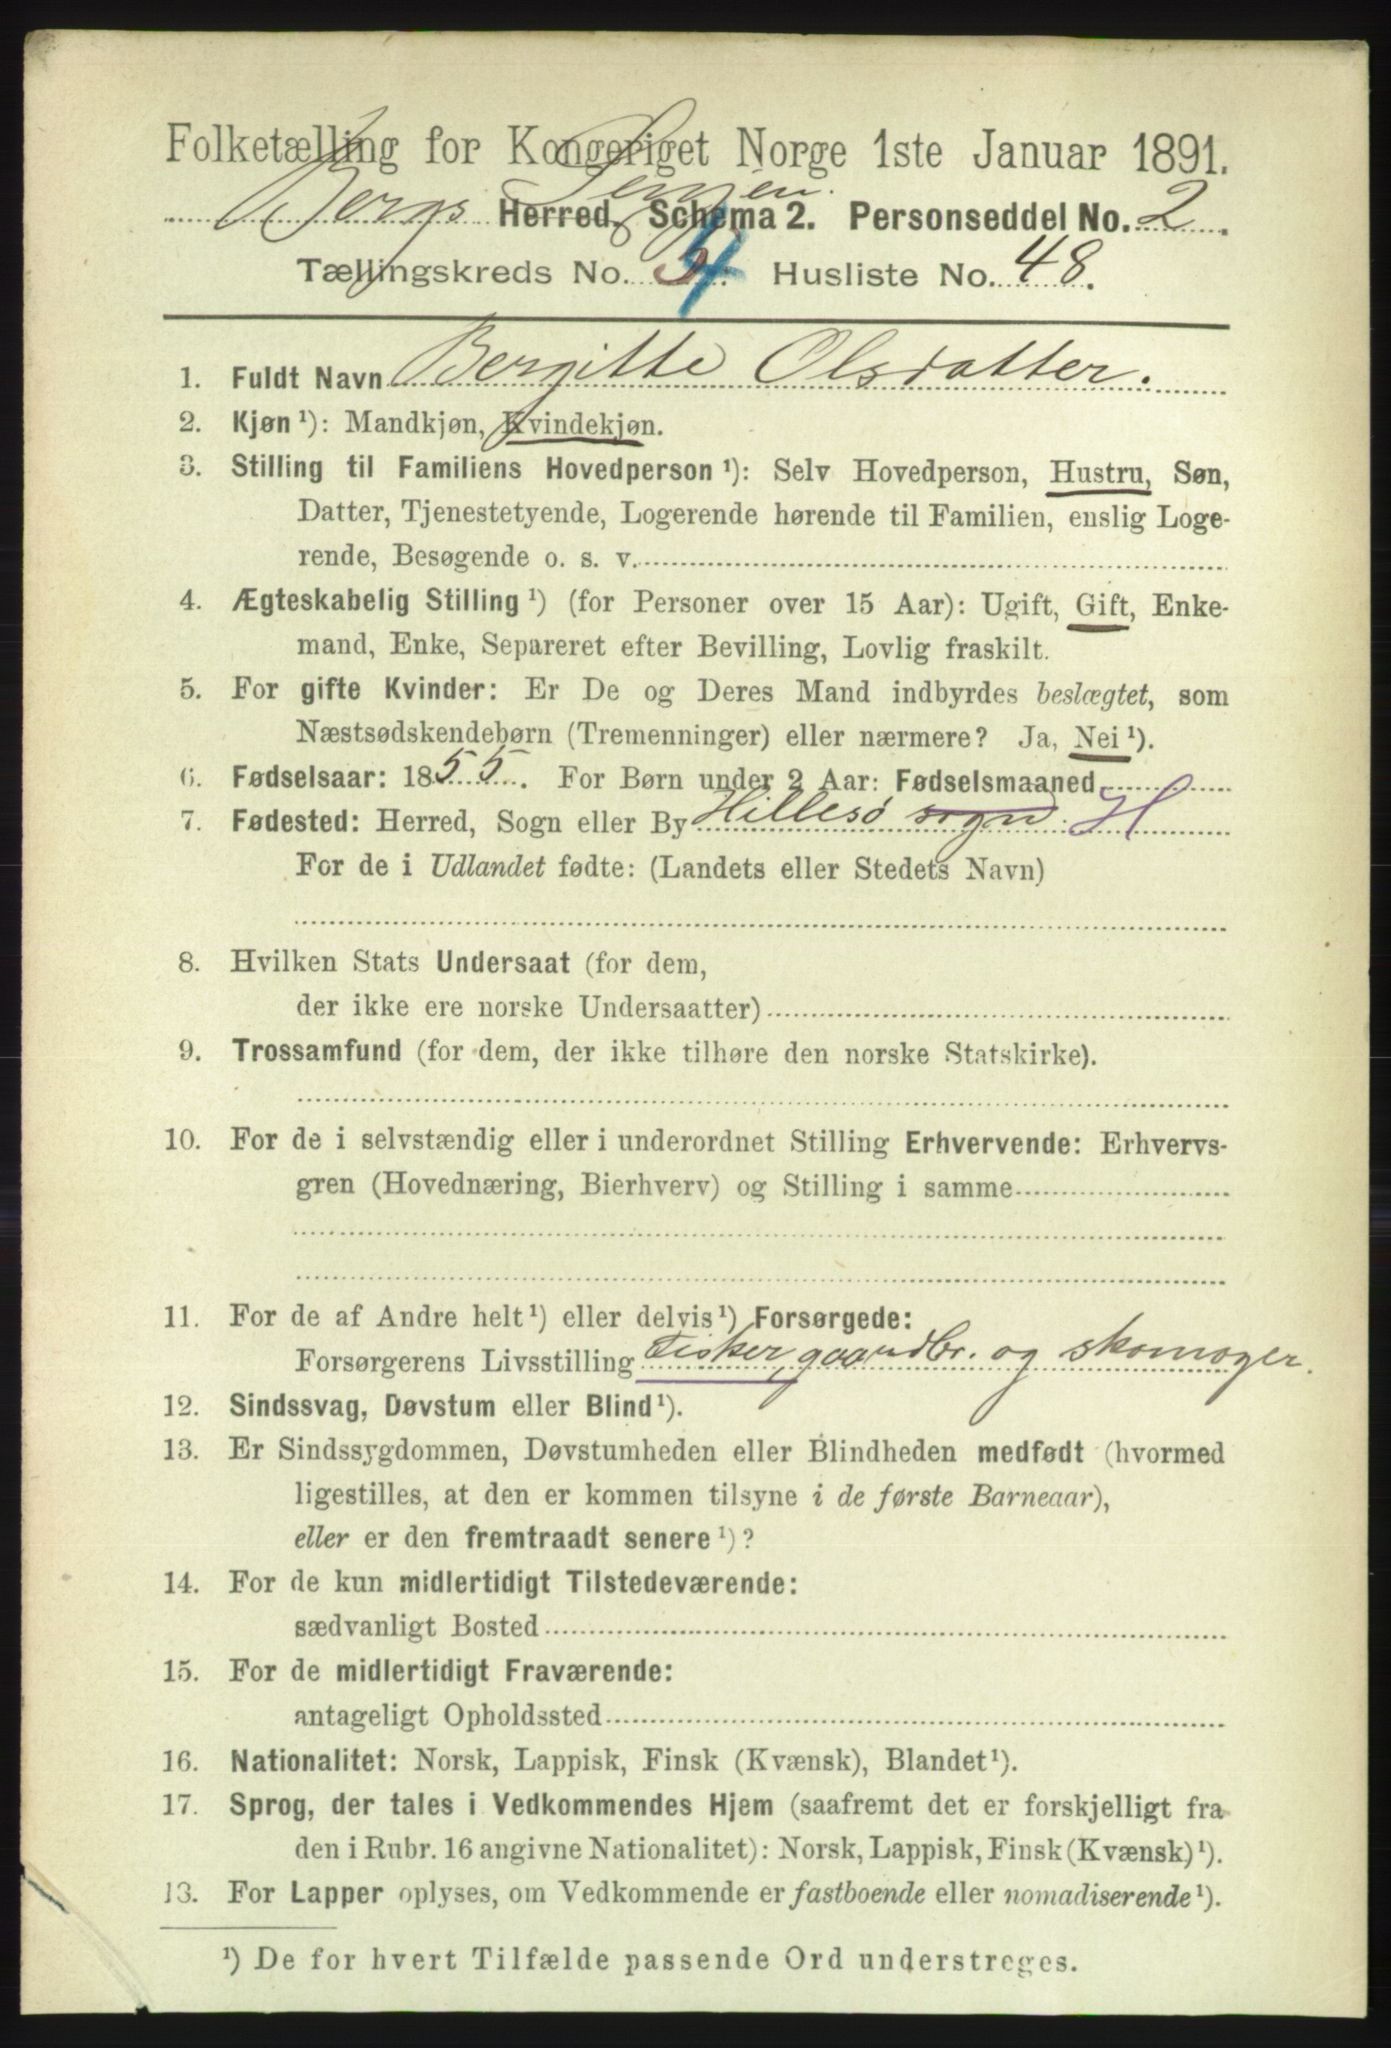 Folketælling for Kongeriget Norge 1ste Januar 1891.
Bergs Herred. Schema 2. Personseddel No. 2.
Tællingskreds No. 4. Husliste No. 48.
1. Fuldt Navn Bergitte Olsdatter.
2. Kjøn ¹): Mandkjøn, Kvindekjøn.
3. Stilling til Familiens Hovedperson ¹): Selv Hovedperson, Hustru, Søn,
Datter, Tjenestetyende, Logerende hørende til Familien, enslig Loge-
rende, Besøgende o. s. v.
4. Ægteskabelig Stilling ¹) (for Personer over 15 Aar): Ugift, Gift, Enke-
mand, Enke, Separeret efter Bevilling, Lovlig fraskilt.
5. For gifte Kvinder: Er De og Deres Mand indbyrdes beslægtet, som
Næstsødskendebørn (Tremenninger) eller nærmere? Ja, Nei ¹).
6. Fødselsaar: 1855. For Børn under 2 Aar: Fødselsmaaned
7. Fødested: Herred, Sogn eller By Hillesø sogn H
For de i Udlandet fødte: (Landets eller Stedets Navn)
8. Hvilken Stats Undersaat (for dem,
der ikke ere norske Undersaatter)
9. Trossamfund (for dem, der ikke tilhøre den norske Statskirke).
10. For de i selvstændig eller i underordnet Stilling Erhvervende: Erhvervs-
gren (Hovednæring, Bierhverv) og Stilling i samme
11. For de af Andre helt ¹) eller delvis ¹) Forsørgede:
Forsørgerens Livsstilling Fisker, gaardbr. og skomager.
12. Sindssvag, Døvstum eller Blind ¹).
13. Er Sindssygdommen, Døvstumheden eller Blindheden medfødt (hvormed
ligestilles, at den er kommen tilsyne i de første Barneaar),
eller er den fremtraadt senere ¹)?
14. For de kun midlertidigt Tilstedeværende:
sædvanligt Bosted
15. For de midlertidigt Fraværende:
antageligt Opholdssted
16. Nationalitet: Norsk, Lappisk, Finsk (Kvænsk), Blandet ¹).
17. Sprog, der tales i Vedkommendes Hjem (saafremt det er forskjelligt fra
den i Rubr. 16 angivne Nationalitet): Norsk, Lappisk, Finsk (Kvænsk) ¹).
18. For Lapper oplyses, om Vedkommende er fastboende eller nomadiserende ¹).
¹) De for hvert Tilfælde passende Ord understreges.